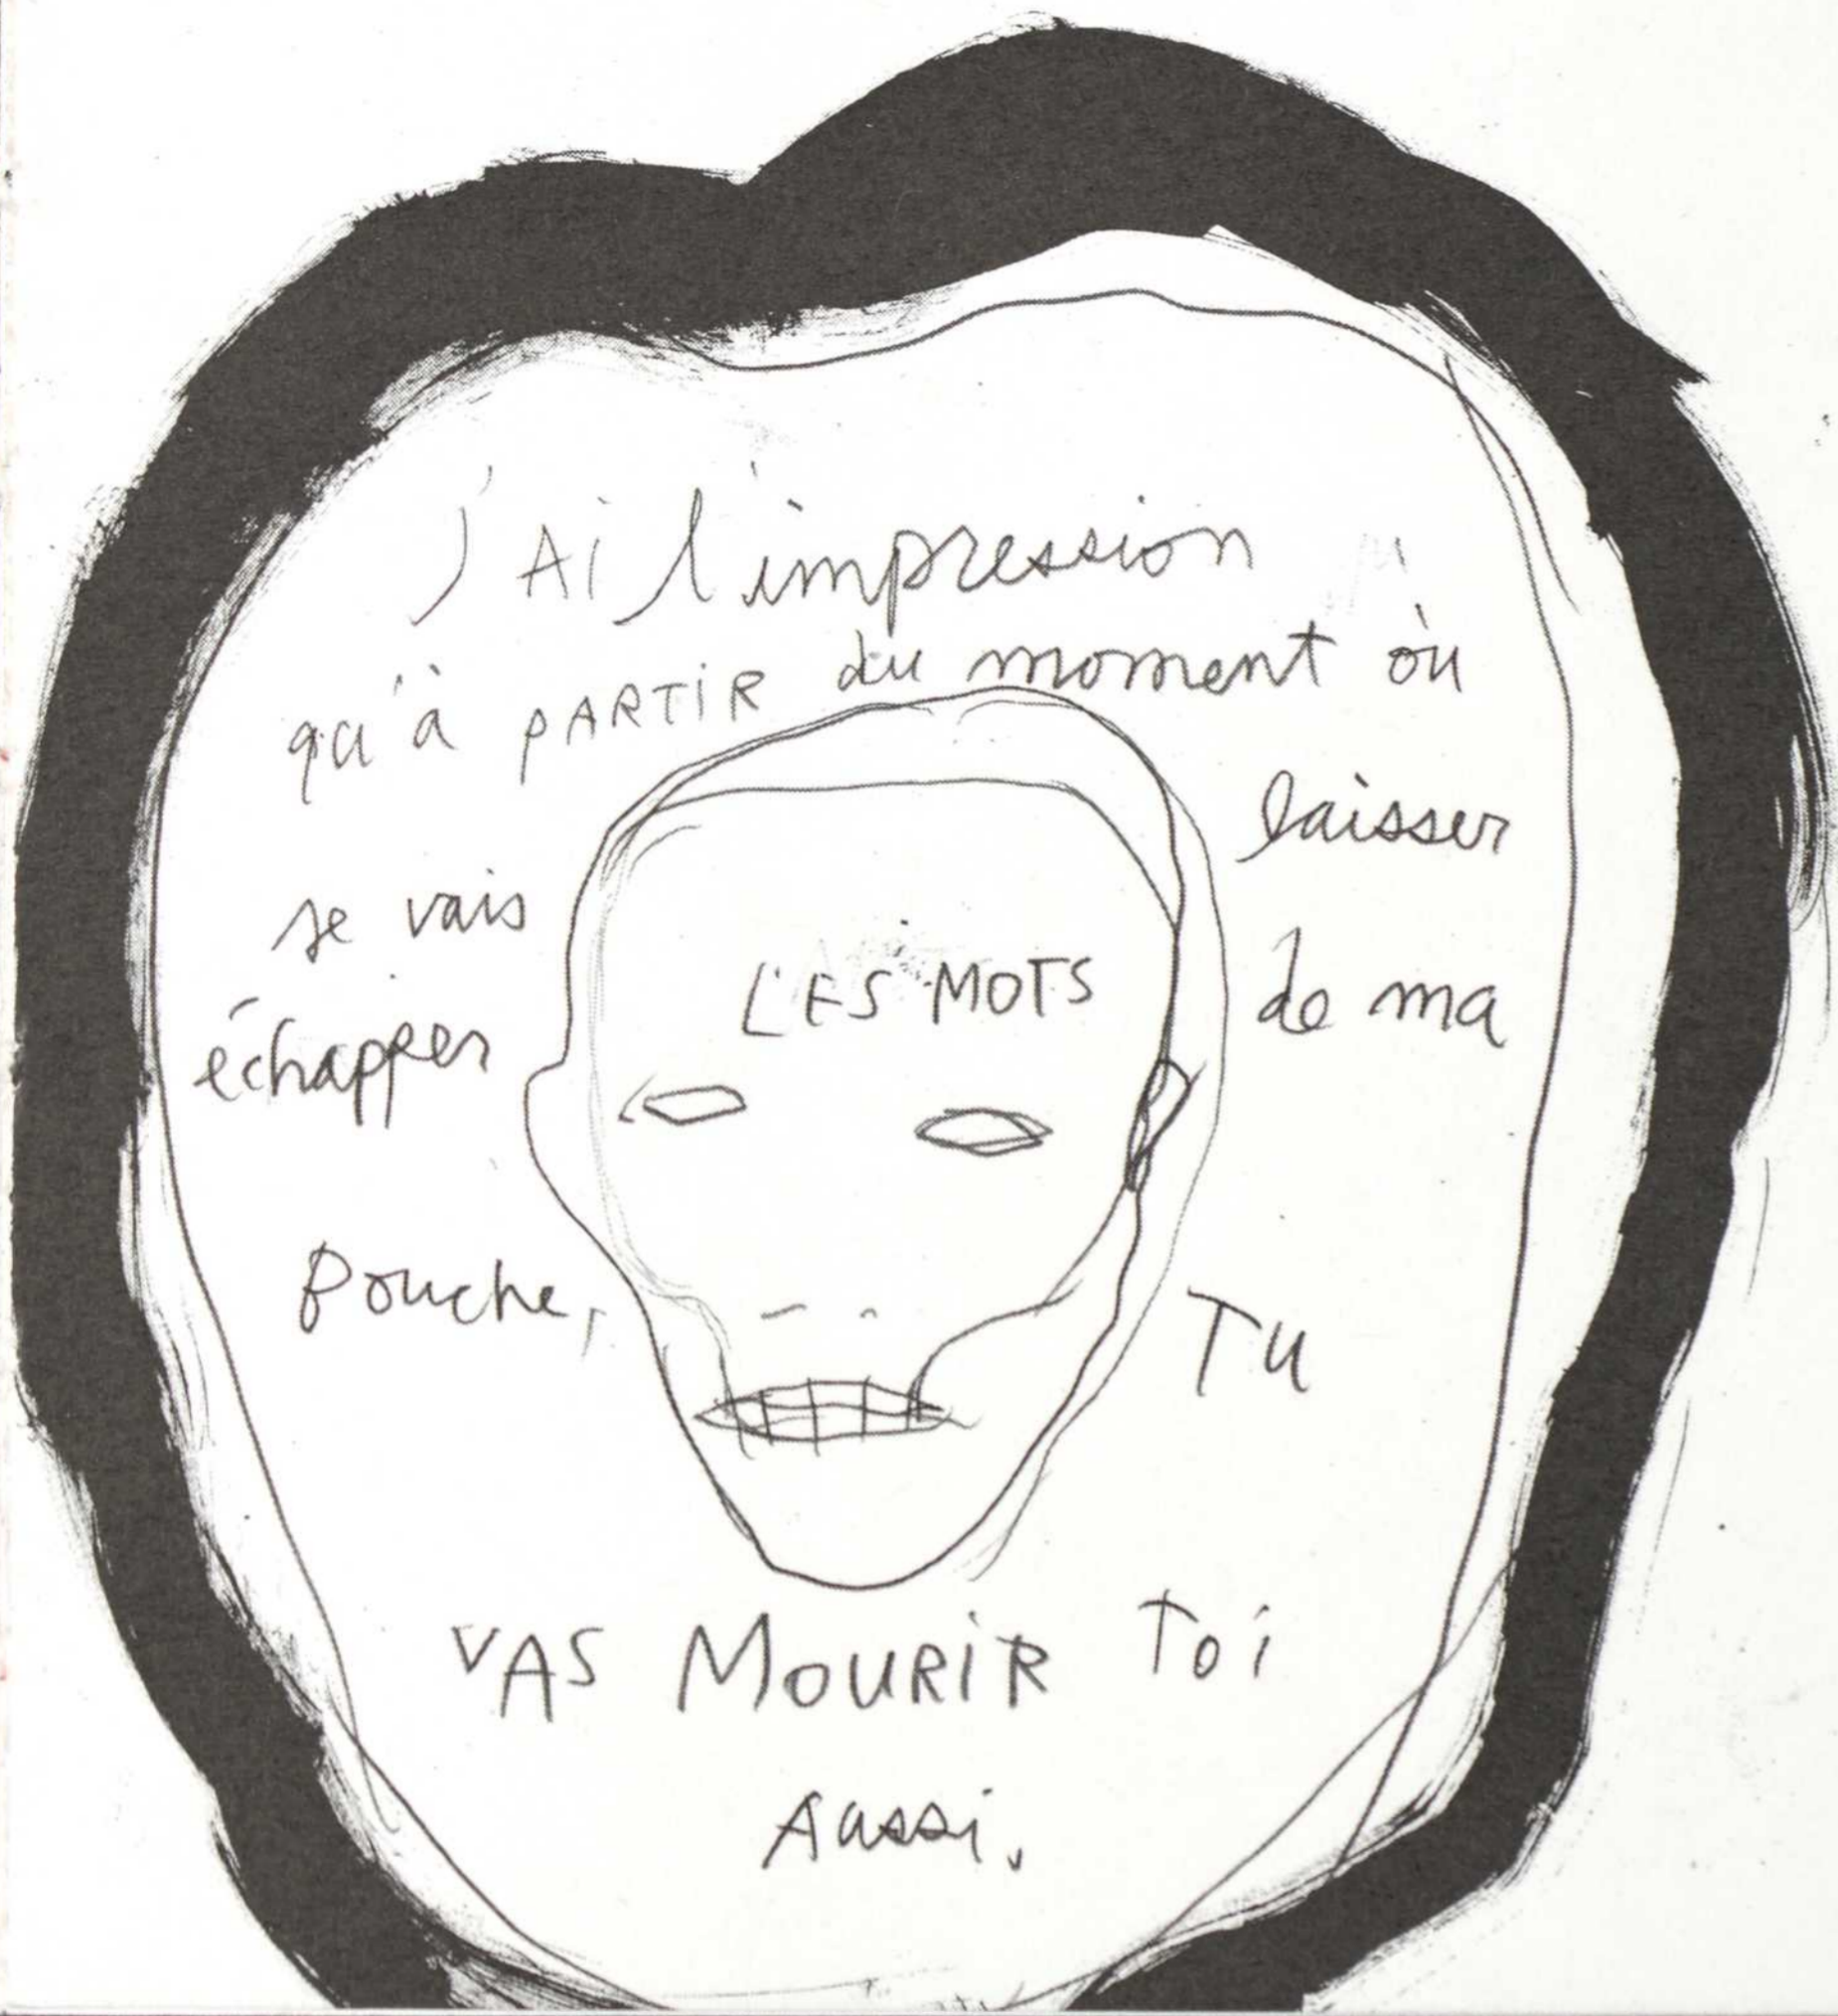 J'Ai l'impression
qu'à PARTiR du moment où
je vais laisser
échapper LES MOTS de ma
bouche, TU
VAS MOURiR Toi
Aussi.